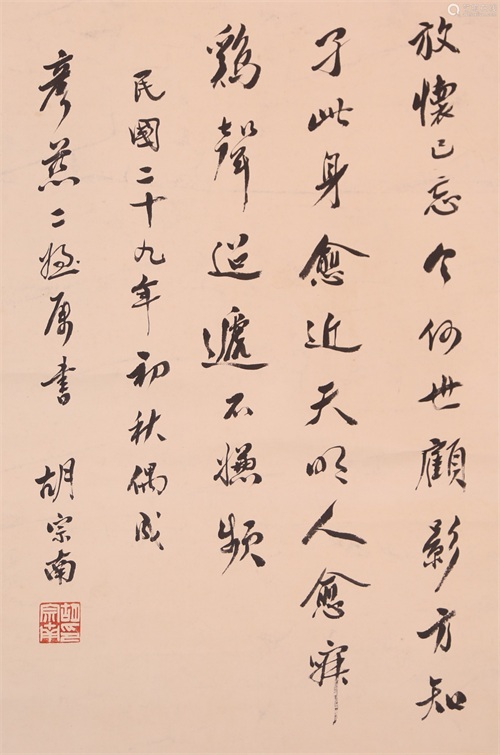 放懷已忘今何世顧影方知
孑此身愈近天明人愈寐
鷄聲迢遞不嫌頻
民國二十九年初秋偶成
彥燕二嫂屬書
胡宗南